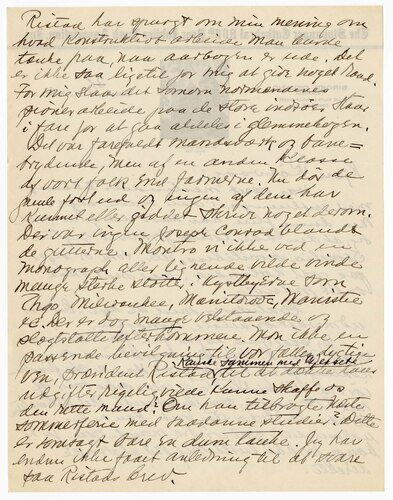 Ristad har spurgt om min mening om
hvad konstruktivt arbeide man burde
tænke paa, naar aarbogen er ude. Det
er ikke saa ligetil for mig at give noget raad.
For mig staar det som om normændenes
pionerarbeide paa de store indsjøer staar
i fare for at gaa aldeles i glemmebogen.
Det var farefuldt mandsverk og bane-
brydende, men af en anden klasse
af vort folk end farmerne. Nu dør de
gamle fort ud og ingen af dem har
kunnet eller giddet skrive noget derom.
Der var ingen Joseph Conrad blandt
de gutterne. Montro vi ikke ved en
monograph eller lignende vilde vinde
mange sterke støtte i kystbyerne som
Chgo, Milwaukee, Manitowoc, Manistee
&c. Der er dog mange velstaaende og
slegtstolte efterkommere. Mon ikke en
passende bevilgning til vor fælles
ven, president Ristad til at dække hans
kanske sammen med Dr. Koht
udgifter rigelig vilde kunne skaffe os
den rette mand? Om han tilbragte næste
sommerferie med saadanne studier? Dette
er somsagt bare en dum tanke. Jeg har
endnu ikke faaet anledning til at svare
paa Ristads brev.